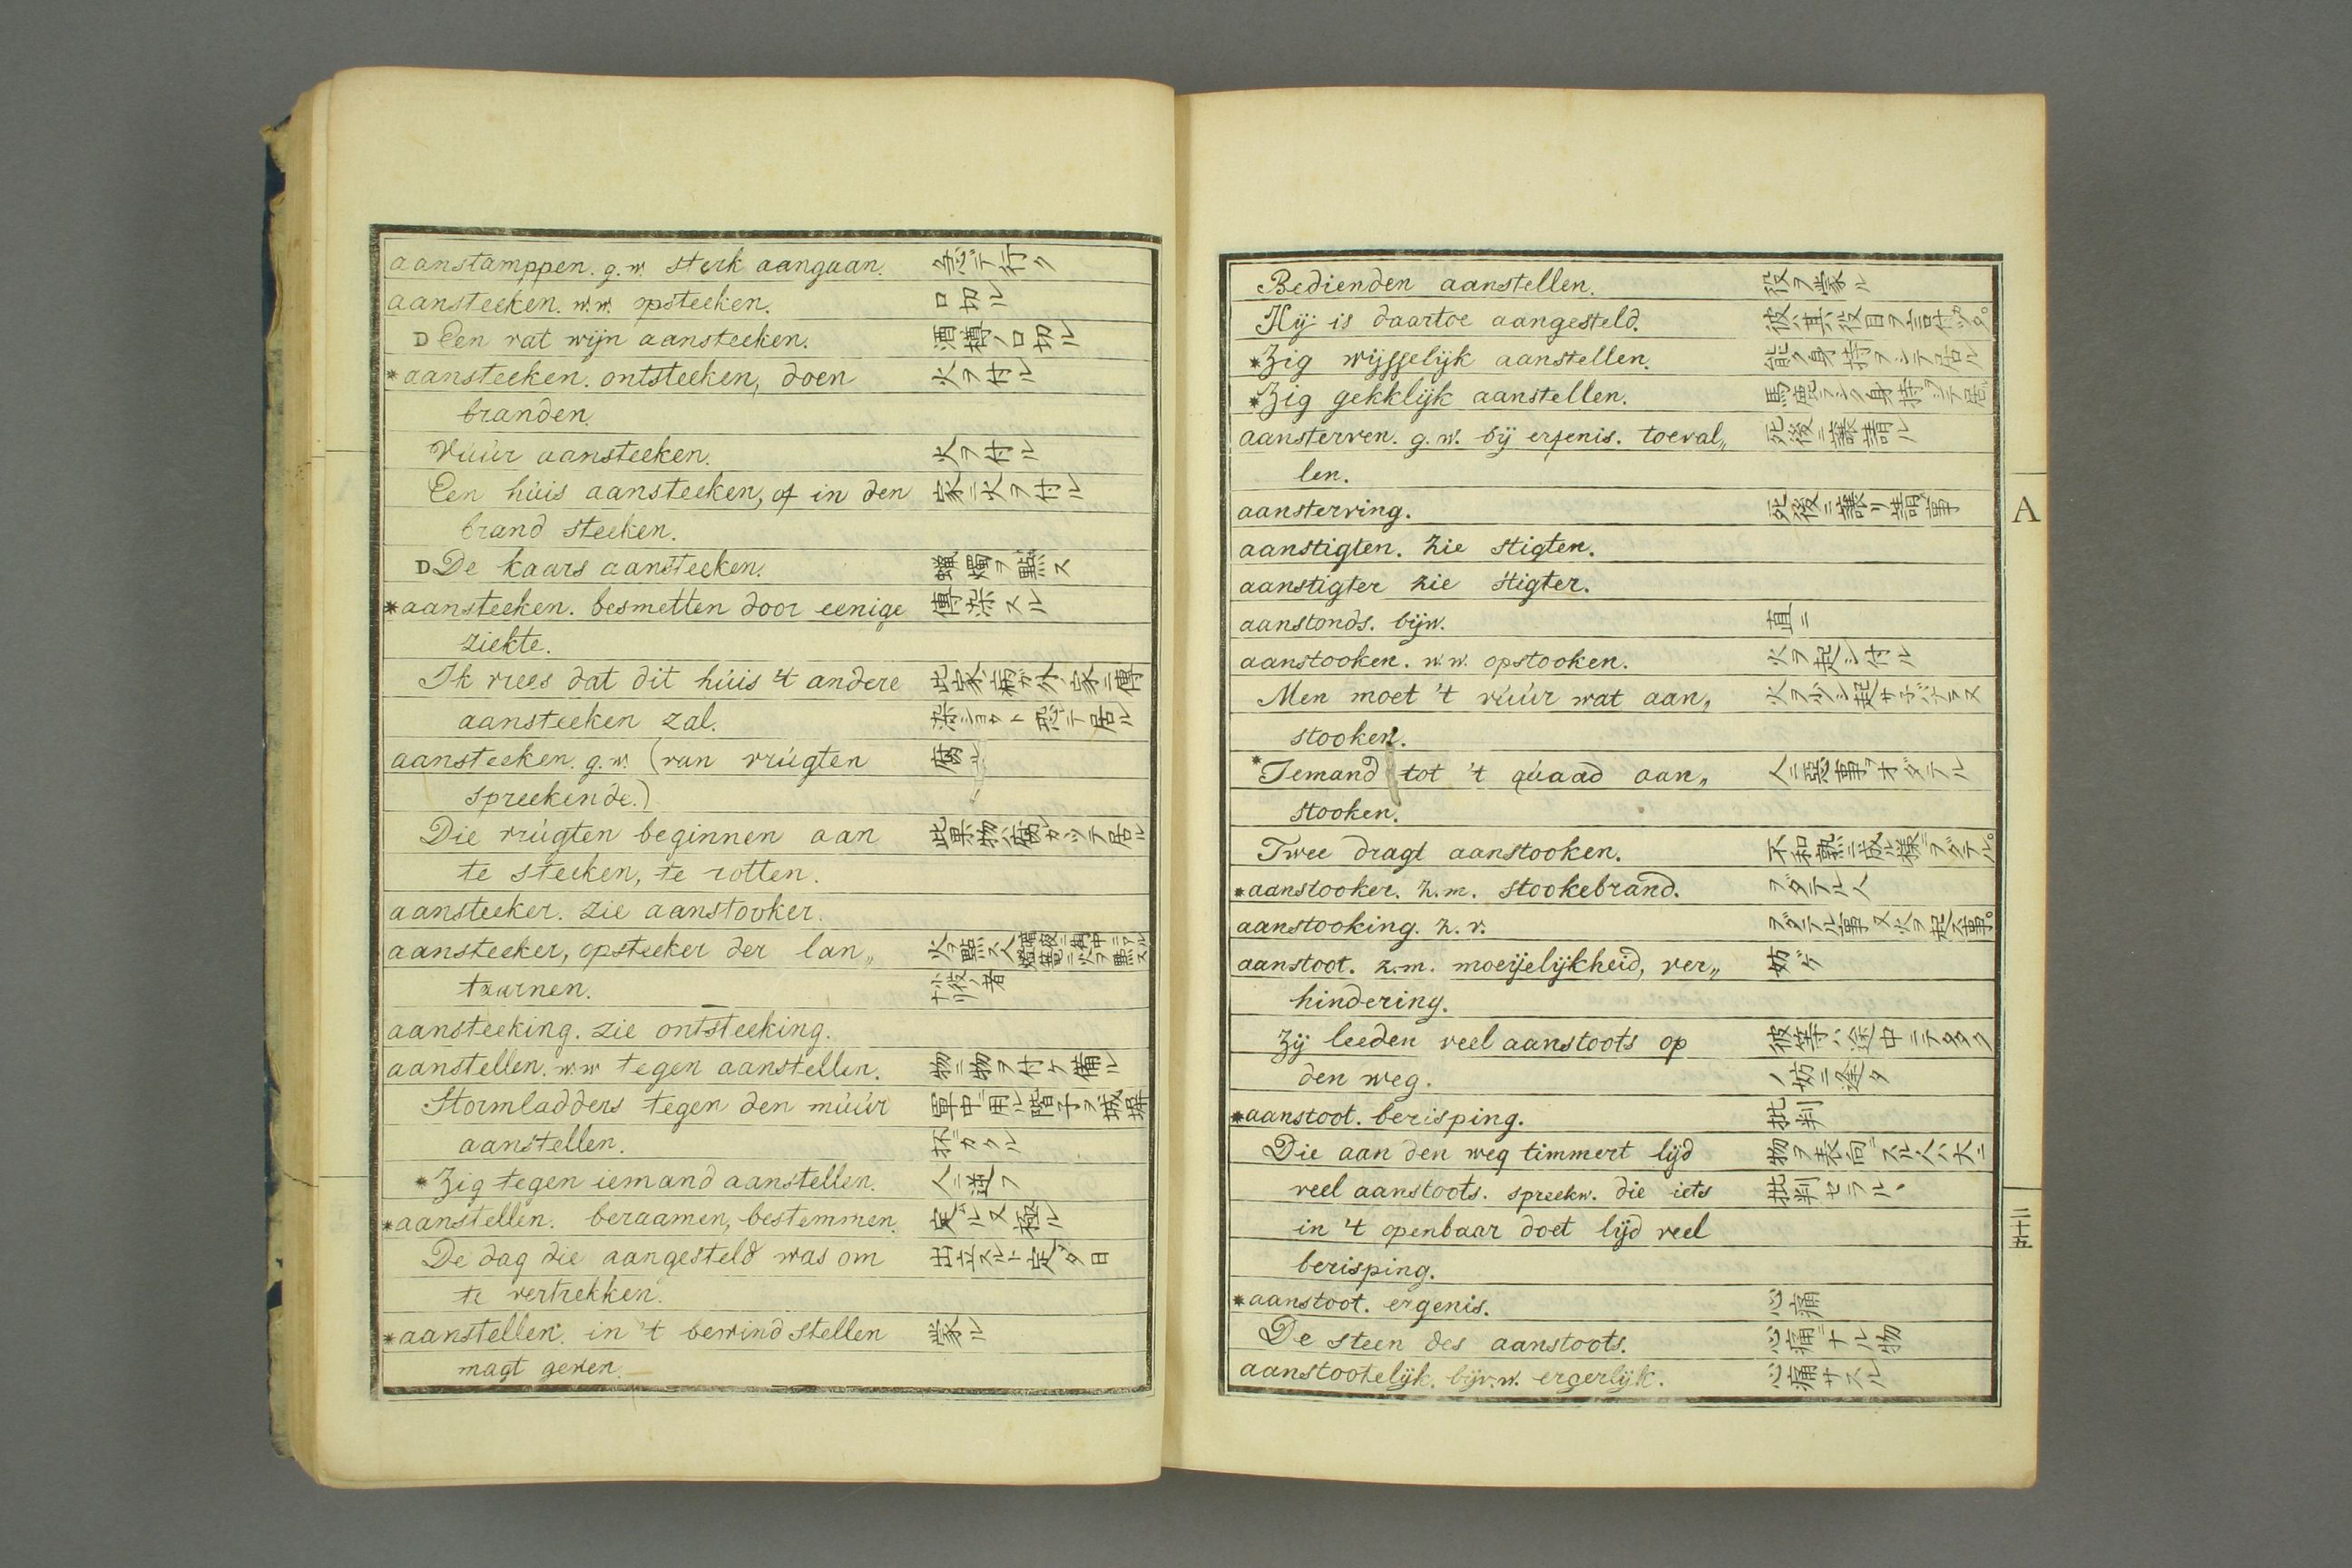 aanstamppen. g.w. sterk aangaan. 急テ行ク
aansteeken. w.w. opsteeken. 口切ル
D Een vat wijn aansteeken. 酒樽ノ口切ル
*aansteeken. ontsteeken, doen 火ヲ付ル
branden.
Vúúr aansteeken. 火ヲ付ル
Een húis aansteeken, of in den 家ニ火ヲ付ル
brand steeken.
D De kaars aansteeken. 蠟燭ヲ點ス
*aansteeken. besmetten door eenige 傳染スル
ziekte.
Ik vrees dat dit húis 't andere 此家ノ病ガ外ノ家ニ傳
aansteeken zal. 染シヨウト恐テ居ル
aansteeken. g.w. (van vrúgten 腐ル
spreekende.)
Die vrúgten beginnen aan 此果物ハ腐レカツテ居ル
te steeken, te rotten.
aansteeker. zie aanstooker.
aansteeker, opsteeker der lan„ 火ヲ點ス人
taarnen. 役ノ者
aansteeking. zie ontsteeking.
aanstellen. w.w tegen aanstellen. 物ニ物ヲ付ケ備ル
Stormladders tegen den múúr 軍中ニ用ル階子ヲ城塀
aanstellen. 抔ニカクル
*Zig tegen iemand aanstellen. 人ニ逆フ
*aanstellen. beraamen, bestemmen. 定ル又極ル
De dag die aangesteld was om 出立スルト定タ日
te vertrekken.
*aanstellen. in 't bewind stellen 掌ル
magt geven.
Bedienden aanstellen. 役ヲ掌ル
Hij is daartoe aangesteld. 彼ハ其役目ヲ言付ツタ。
*Zig wijsselijk aanstellen. 能ク身持ヲシテ居ル
*Zig gekklijk aanstellen. 馬鹿ラシク身持ヲシテ居ル
aansterven. g.w. bij erfenis. toeval„ 死後ニ譲請ル
len.
aansterving. 死後ニ譲リ請ル事
aanstigten. zie stigten.
aanstigter zie stigter.
aanstonds. bijw. 直ニ
aanstooken. w.w. opstooken. 火ヲ起シ付ル
Men moet 't vúúr wat aan„ 火ヲ少シ起サネバナラヌ
stooken.
*Iemand tot 't qúaad aan„ 人ニ惡事ヲオダテル
stooken.
Twee dragt aanstooken. 不和熟ニ成ル様ニヲダテル。
*aanstooker. z.m. stookebrand. ヲダテル人
aanstooking. z.v. ヲダテル事 又火ヲ起ス事。
aanstoot. z.m. moeijelijkheid, ver„ 妨ゲ
hindering.
Zij leeden veel aanstoots op 彼等ハ途中ニテ多ク
den weg. ノ妨ニ逢タ
*aanstoot. berisping. 批判
Die aan den weg timmert lijd 物ヲ表向ニスル人ハ大ニ
veel aanstoots. spreekw. die iets 批判セラル
in 't openbaar doet lijd veel
berisping.
*aanstoot. ergenis. 心痛
De steen des aanstoots. 心痛ニナル物
aanstootelijk. bijv.w. ergerlijk. 心痛サスル
A
二十五